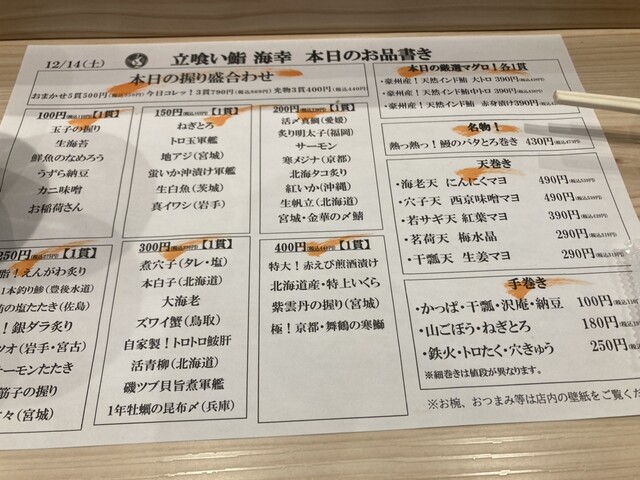 12/14(土) 立喰い鮨 海幸 本日のお品書き
本日の握り盛合わせ
おまかせ5貫500円(税込550円) 今日コレッ!3貫790円(税込869円) 光物3貫400円(税込440円)
100円(税込110円)【1貫】
玉子の握り
生海苔
鮮魚のなめろう
うずら納豆
カニ味噌
お稲荷さん
150円(税込165円)【1貫】
ねぎとろ
トロ玉軍艦
地アジ(宮城)
蛍いか沖漬け軍艦
生白魚(茨城)
真イワシ(岩手)
200円(税込220円)【1貫】
活〆真鯛(愛媛)
炙り明太子(福岡)
サーモン
寒メジナ(京都)
北海タコ炙り
紅いか(沖縄)
生帆立(北海道)
宮城・金華の〆鯖
本日の厳選マグロ!各1貫
・豪州産!天然インド鮪 大トロ 390円
・豪州産!天然インド鮪 中トロ 390円
・豪州産!天然インド鮪 赤身漬け 390円
名物!
熱っ熱っ!鰻のバタとろ巻き 430円
天巻き
・海老天 にんにくマヨ 490円
・穴子天 西京味噌マヨ 490円
・若サギ天 紅葉マヨ 390円
・茗荷天 梅水晶 290円
・干瓢天 生姜マヨ 290円
250円【1貫】
脂!えんがわ炙り
1本釣り鯵(豊後水道)
の塩たたき(佐島)
!銀ダラ炙り
ツオ(岩手・宮古)
サーモンたたき
筋子の握り
々(宮城)
300円【1貫】
煮穴子(タレ・塩)
本白子(北海道)
大海老
ズワイ蟹(鳥取)
自家製!トロトロ鮟肝
活青柳(北海道)
磯ツブ貝旨煮軍艦
1年牡蠣の昆布〆(兵庫)
400円【1貫】
特大!赤えび煎酒漬け
北海道産・特上いくら
紫雲丹の握り(宮城)
極!京都・舞鶴の寒鰤
手巻き
・かっぱ・干瓢・沢庵・納豆 100円
・山ごぼう・ねぎとろ 180円
・鉄火・トロたく・穴きゅう 250円
※細巻きは値段が異なります。
※お椀、おつまみ等は店内の壁紙をご覧くだ